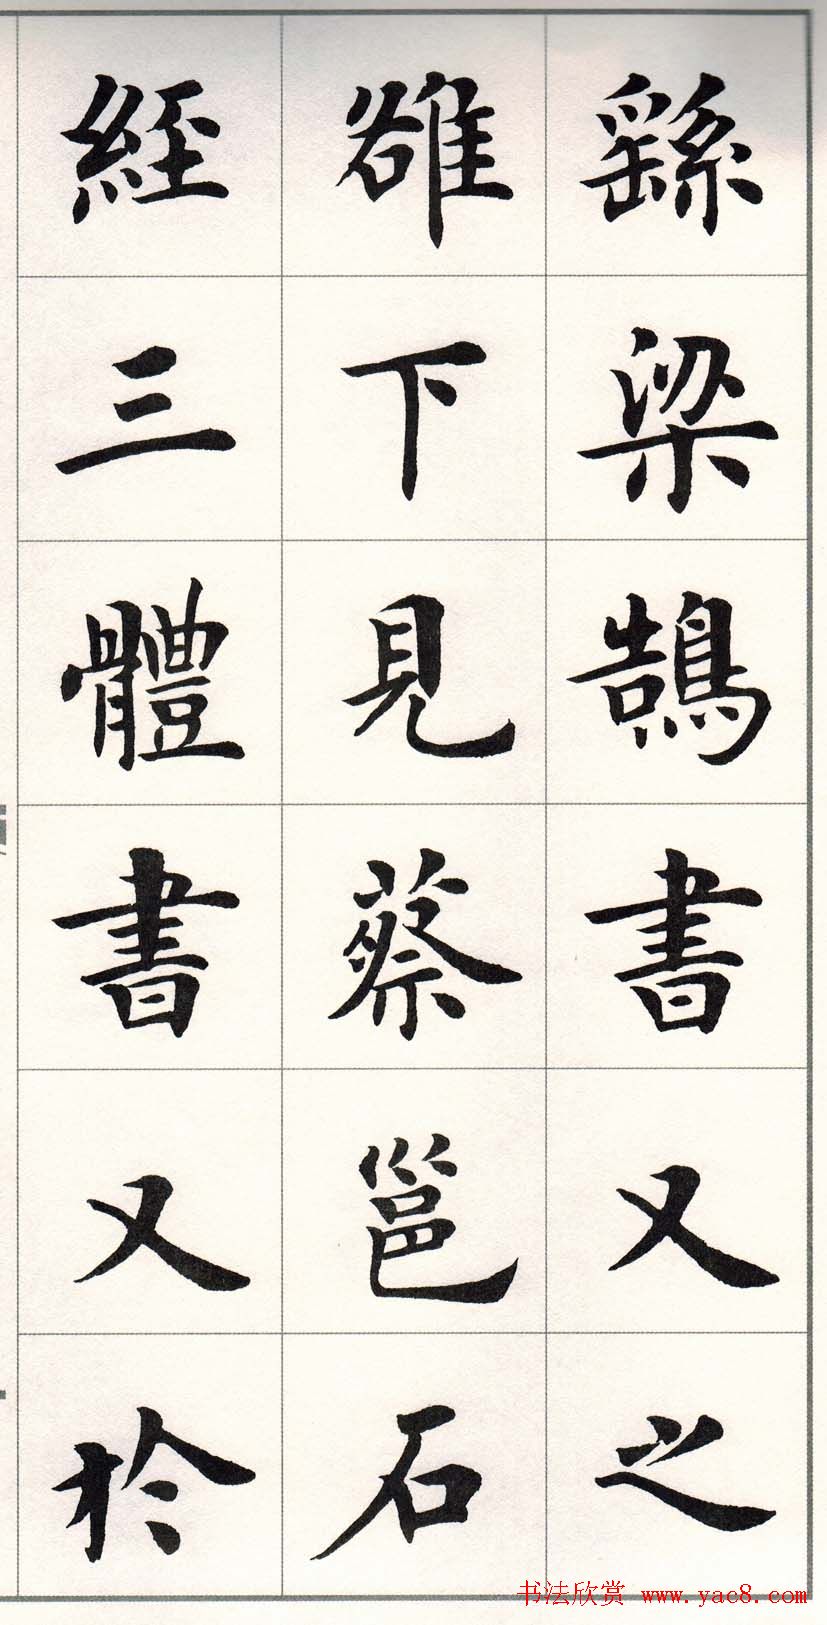 繇梁鵠書又之
雒下見蔡邕石
經三體書又於
书法欣赏 www.yac8.com